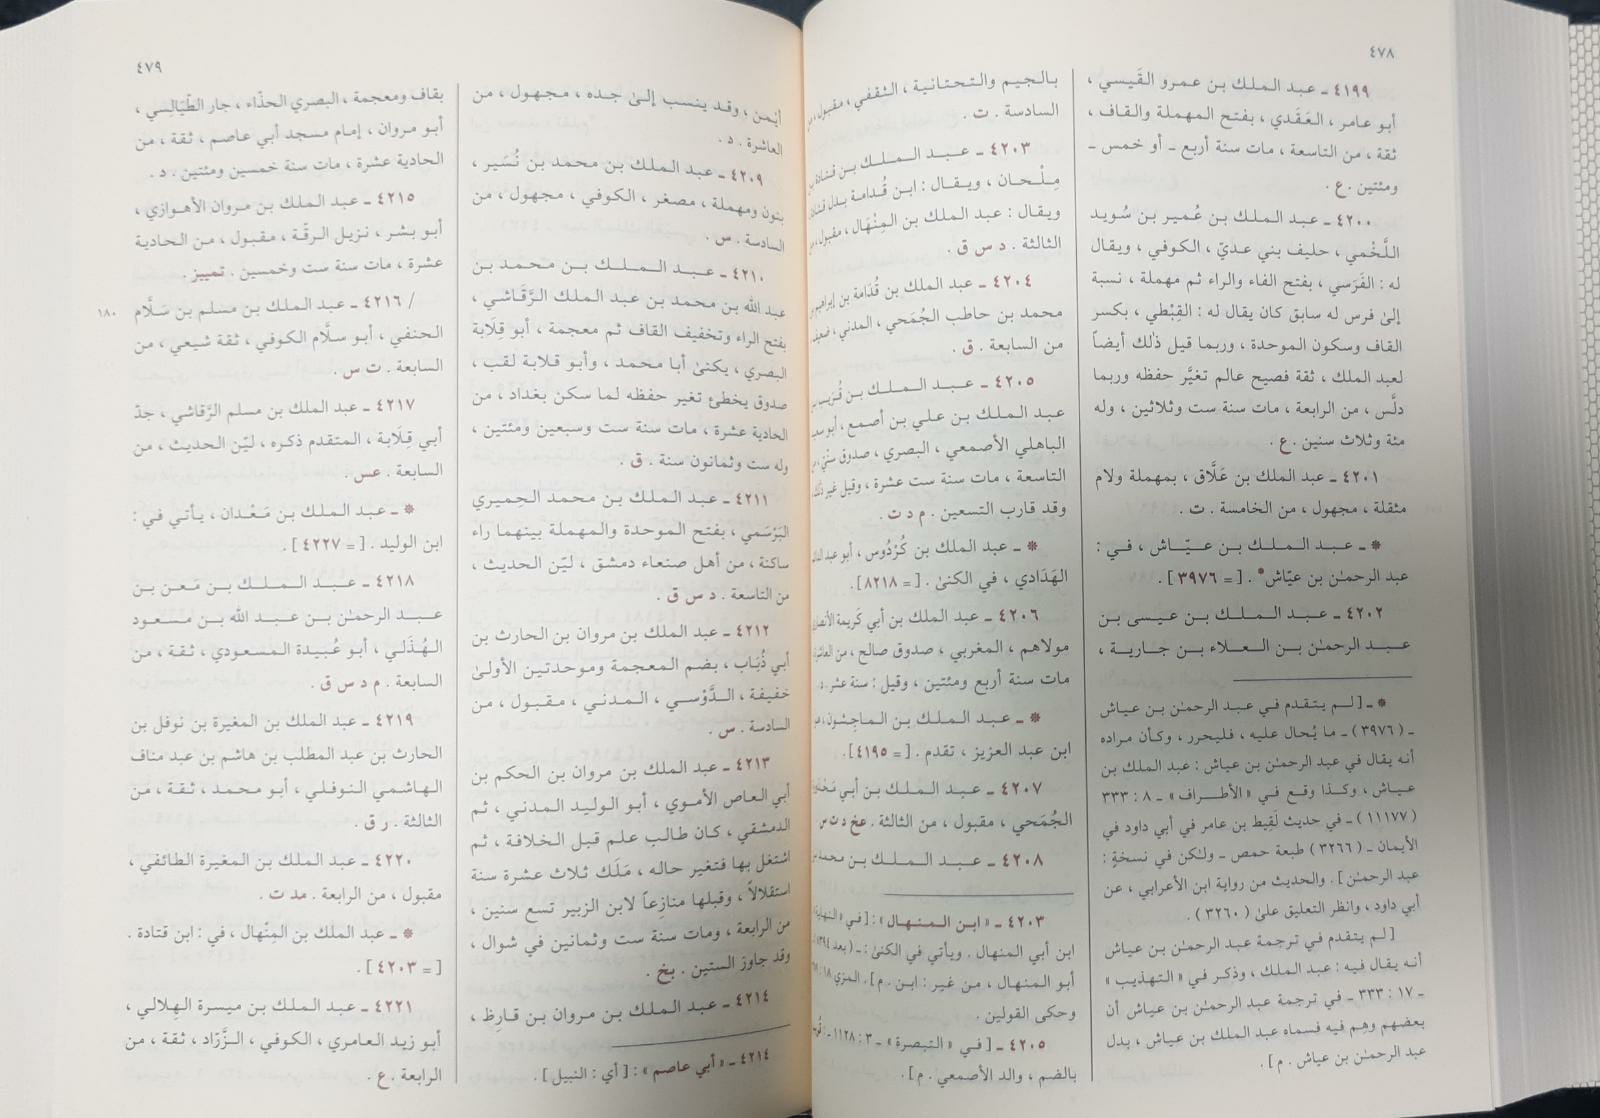 ٤٧٨
٤١٩٩ ـ عبد الملك بن عمرو القَيسي ،
أبو عامر ، العَقَدي ، بفتح المهملة والقاف ،
ثقة ، من التاسعة ، مات سنة أربع ـ أو خمس ـ
ومئتين . ع .
٤٢٠٠ ـ عبد الملك بن عُمير بن سُويد
اللَّخْمي ، حليف بني عديّ ، الكوفي ، ويقال
له : الفَرَسي ، بفتح الفاء والراء ثم مهملة ، نسبة
إلىٰ فرس له سابق كان يقال له : القِبْطي ، بكسر
القاف وسكون الموحدة ، وربما قيل ذٰلك أيضاً
لعبد الملك ، ثقة فصيح عالم تغيَّر حفظه وربما
دلَّس ، من الرابعة ، مات سنة ست وثلاثين ، وله
مئة وثلاث سنين . ع .
٤٢٠١ ـ عبد الملك بن عَلَّاق ، بمهملة ولام
مثقلة ، مجهول ، من الخامسة . ت .
* ـ عبد الملك بن عيّاش ، في :
عبد الرحمٰن بن عيّاش* . [= ٣٩٧٦] .
٤٢٠٢ ـ عبد الملك بن عيسى بن
عبد الرحمٰن بن العلاء بن جارية ،
* ـ [لم يتقدم في عبد الرحمٰن بن عياش
ـ (٣٩٧٦) ـ ما يُحال عليه ، فليحرر ، وكأن مراده
أنه يقال في عبد الرحمٰن بن عياش : عبد الملك بن
عياش ، وكذا وقع في « الأطراف » ـ ٨ : ٣٣٣
(١١١٧٧) ـ في حديث لَقِيط بن عامر في أبي داود في
الأيمان ـ (٣٢٦٦) طبعة حمص ـ ولٰكن في نسخةٍ :
عبد الرحمٰن] . والحديث من رواية ابن الأعرابي ، عن
أبي داود ، وانظر التعليق علىٰ (٣٢٦٠) .
[لم يتقدم في ترجمة عبد الرحمٰن بن عياش
أنه يقال فيه : عبد الملك ، وذكر في « التهذيب »
ـ ١٧ : ٣٣٣ ـ في ترجمة عبد الرحمٰن بن عياش أن
بعضهم وهم فيه فسماه عبد الملك بن عياش ، بدل
عبد الرحمٰن بن عياش . م] .
بالجيم والتحتانية ، الثقفي ، مقبول ، من
السادسة . ت .
٤٢٠٣ ـ عبد الملك بن قتادة بن
مِلْحان ، ويقال : ابن قُدامة بدل قتادة ،
ويقال : عبد الملك بن المِنْهال ، مقبول ، من
الثالثة . د س ق .
٤٢٠٤ ـ عبد الملك بن قُدَامة بن إبراهيم بن
محمد بن حاطب الجُمَحي ، المدني ، ضعيف ،
من السابعة . ق .
٤٢٠٥ ـ عبد الملك بن قُريب بن
عبد الملك بن علي بن أصمع ، أبو سعيد
الباهلي الأصمعي ، البصري ، صدوق سنّي ، من
التاسعة ، مات سنة ست عشرة ، وقيل غير ذٰلك ،
وقد قارب التسعين . م د ت .
* ـ عبد الملك بن كُرْدُوس ، أبو عبد الدائم
الهَدَادي ، في الكنىٰ . [= ٨٢١٨] .
٤٢٠٦ ـ عبد الملك بن أبي كَريمة الأنصاري
مولاهم ، المغربي ، صدوق صالح ، من العاشرة ،
مات سنة أربع ومئتين ، وقيل : سنة عشر . د .
* ـ عبد الملك بن الماجِشُون ، هو
ابن عبد العزيز ، تقدم . [= ٤١٩٥] .
٤٢٠٧ ـ عبد الملك بن أبي مَحْذورة
الجُمَحي ، مقبول ، من الثالثة . عخ د ت س
٤٢٠٨ ـ عبد الملك بن محمد بن
٤٢٠٣ ـ « ابن المنهال » : [في « النهاية »
ابن أبي المنهال . ويأتي في الكنىٰ : ـ (بعد ٨٣٩٤)
أبو المنهال ، من غير : ابن . م] . المزي ١٨ :
وحكى القولين .
٤٢٠٥ ـ [في « التبصرة » ـ ٣ : ١١٢٨ ـ : قُريب
بالضم ، والد الأصمعي . م] .
٤٧٩
أيْمن ، وقد ينسب إلىٰ جده ، مجهول ، من
العاشرة . د .
٤٢٠٩ ـ عبد الملك بن محمد بن نُسَير ،
بنون ومهملة ، مصغر ، الكوفي ، مجهول ، من
السادسة . س .
٤٢١٠ ـ عبد الملك بن محمد بن
عبد الله بن محمد بن عبد الملك الرَّقَاشي ،
بفتح الراء وتخفيف القاف ثم معجمة ، أبو قِلَابة
البصري ، يكنىٰ أبا محمد ، وأبو قلابة لقب ،
صدوق يخطئ تغير حفظه لما سكن بغداد ، من
الحادية عشرة ، مات سنة ست وسبعين ومئتين ،
وله ست وثمانون سنة . ق .
٤٢١١ ـ عبد الملك بن محمد الحِميري
البَرْسَمي ، بفتح الموحدة والمهملة بينهما راء
ساكنة ، من أهل صنعاء دمشق ، ليّن الحديث ،
من التاسعة . د س ق .
٤٢١٢ ـ عبد الملك بن مروان بن الحارث بن
أبي ذُبَاب ، بضم المعجمة وموحدتين الأولىٰ
خفيفة ، الدَّوْسي ، المدني ، مقبول ، من
السادسة . س .
٤٢١٣ ـ عبد الملك بن مروان بن الحكم بن
أبي العاص الأموي ، أبو الوليد المدني ، ثم
الدمشقي ، كان طالب علم قبل الخلافة ، ثم
اشتغل بها فتغير حاله ، مَلَك ثلاث عشرة سنة
استقلالاً ، وقبلها منازِعاً لابن الزبير تسع سنين ،
من الرابعة ، ومات سنة ست وثمانين في شوال ،
وقد جاوز الستين . بخ .
٤٢١٤ ـ عبد الملك بن مروان بن قارِظ ،
٤٢١٤ ـ « أبي عاصم » : [أي : النبيل] .
بقاف ومعجمة ، البصري الحذّاء ، جار الطَّيَالِسي ،
أبو مروان ، إمام مسجد أبي عاصم ، ثقة ، من
الحادية عشرة ، مات سنة خمسين ومئتين . د .
٤٢١٥ ـ عبد الملك بن مروان الأهوازي ،
أبو بشر ، نزيل الرقّة ، مقبول ، من الحادية
عشرة ، مات سنة ست وخمسين . تمييز .
/ ٤٢١٦ ـ عبد الملك بن مسلم بن سَلَّام
١٨٠
الحنفي ، أبو سلَّام الكوفي ، ثقة شيعي ، من
السابعة . ت س .
٤٢١٧ ـ عبد الملك بن مسلم الرَّقاشي ، جدّ
أبي قِلَابة ، المتقدم ذكره ، ليّن الحديث ، من
السابعة . عس .
* ـ عبد الملك بن مَعْدان ، يأتي في :
ابن الوليد . [= ٤٢٢٧] .
٤٢١٨ ـ عبد الملك بن مَعن بن
عبد الرحمٰن بن عبد الله بن مسعود
الهُذَلي ، أبو عُبيدة المسعودي ، ثقة ، من
السابعة . م د س ق .
٤٢١٩ ـ عبد الملك بن المغيرة بن نَوفل بن
الحارث بن عبد المطلب بن هاشم بن عبد مناف
الهاشمي النوفلي ، أبو محمد ، ثقة ، من
الثالثة . ر ق .
٤٢٢٠ ـ عبد الملك بن المغيرة الطائفي ،
مقبول ، من الرابعة . مد ت .
* ـ عبد الملك بن المِنْهال ، في : ابن قتادة .
[= ٤٢٠٣] .
٤٢٢١ ـ عبد الملك بن ميسرة الهِلالي ،
أبو زيد العامري ، الكوفي ، الزَّرّاد ، ثقة ، من
الرابعة . ع .